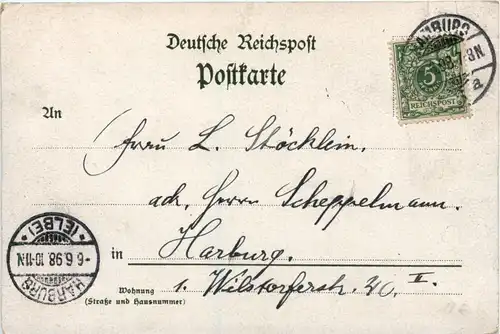 Deutsche Reichspost
Postkarte
An
Frau L. Stöcklein,
adr. Herrn Scheppelmann.
in Harburg.
Wohnung
(Straße und Hausnummer)
1. Wilstorferstr. 40. II.
5
REICHSPOST
HARBURG
* (ELBE) *
-6.6.98. 10-11N.
a